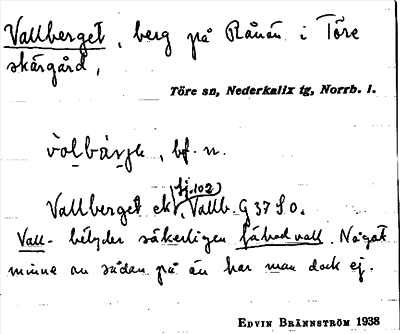 Vallberget, berg på Rånön i Töre
skärgård,
Töre sn, Nederkalix tg, Norrb. l.
bf. n.
(fj. 102)
Vallberget ek, Vallb. G 37 S.O.
Vall- betyder säkerligen fäbodvall. Något
minne av sådan på ön har man dock ej.
EDVIN BRÄNNSTRÖM 1938